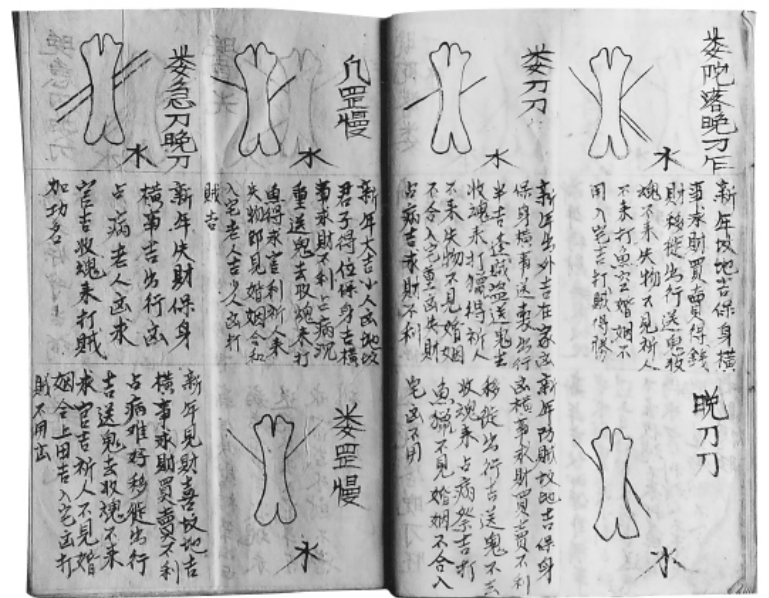 落晚刀
水
新年坟地吉保身横
事求財買賣得錢
財移徙出行送鬼收
魂不来失物不見祈人
不来打魚空婚姻不
用入宅吉打賊得勝
娄刀刀
水
新年出外吉在家凶
保身横事送賣出行
半吉逢賊盗送鬼去
收魂来打獵得祈人
不来失物不見婚姻
不合入宅重凶失財
占病吉求財不利
晚刀刀
水
新年防賊坟地吉保身
凶横事求財買賣不利
移徙出行吉送鬼不去
收魂来占病祭吉打
魚獵不見婚姻不合入
宅凶不用
几罡慢
水
新年大吉小人凶地坟
君子得位保身吉横
事求財不利占病沉
重送鬼去收魂来打
魚得求官利祈人来
失物即見婚姻合和
入宅老人吉少人凶打
賊吉
娄急刀晚刀
水
新年失財保身
横事吉出行凶
占病老人凶求
官吉收魂来打賊
加功名
娄罡慢
水
新年見財喜坟地吉
横事求財買賣不利
占病难好移徙出行
吉送鬼去收魂不来
求官吉祈人不見婚
姻合上田吉入宅凶打
賊不用凶